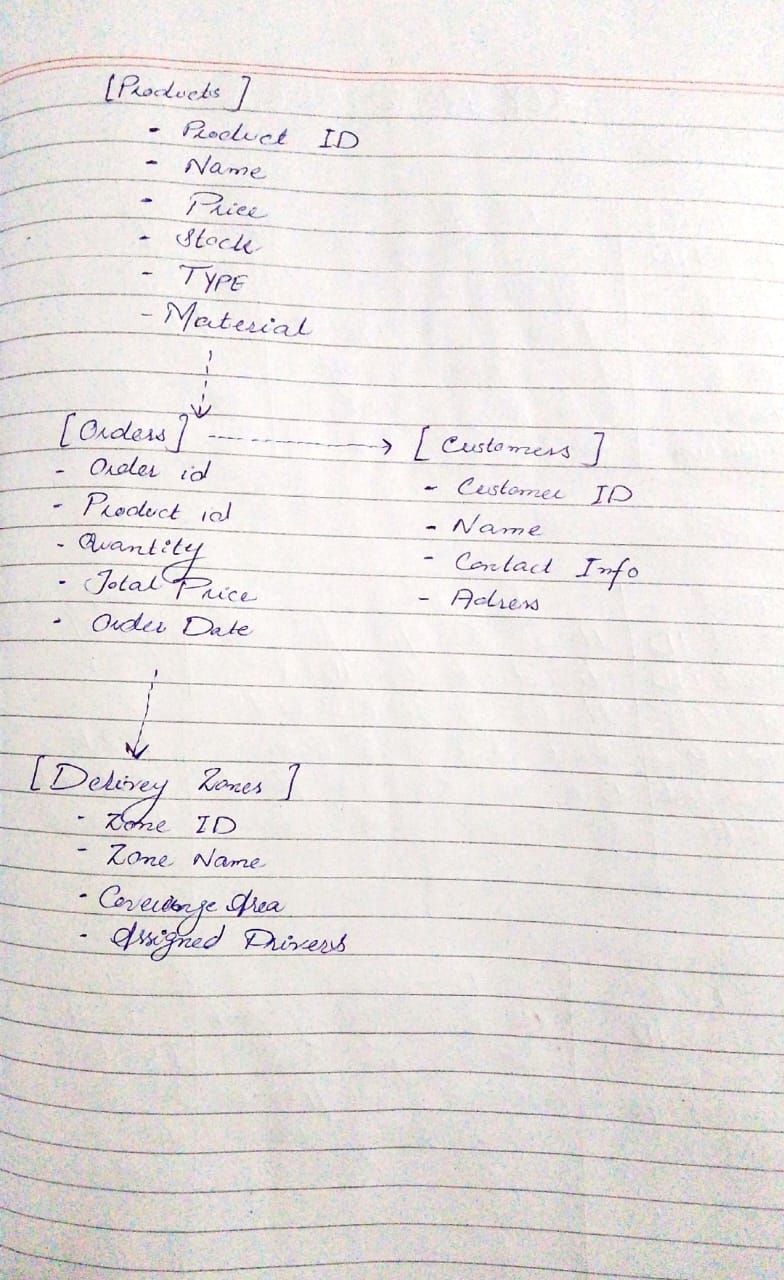 [Products]
- Product ID
- Name
- Price
- Stock
- TYPE
- Material
[Orders]
- Order id
- Product id
- Quantity
- Total Price
- Order Date
[Customers]
- Customer ID
- Name
- Contact Info
- Adress
[Delivey Zones]
- Zone ID
- Zone Name
- Area
- Assigned Drivers